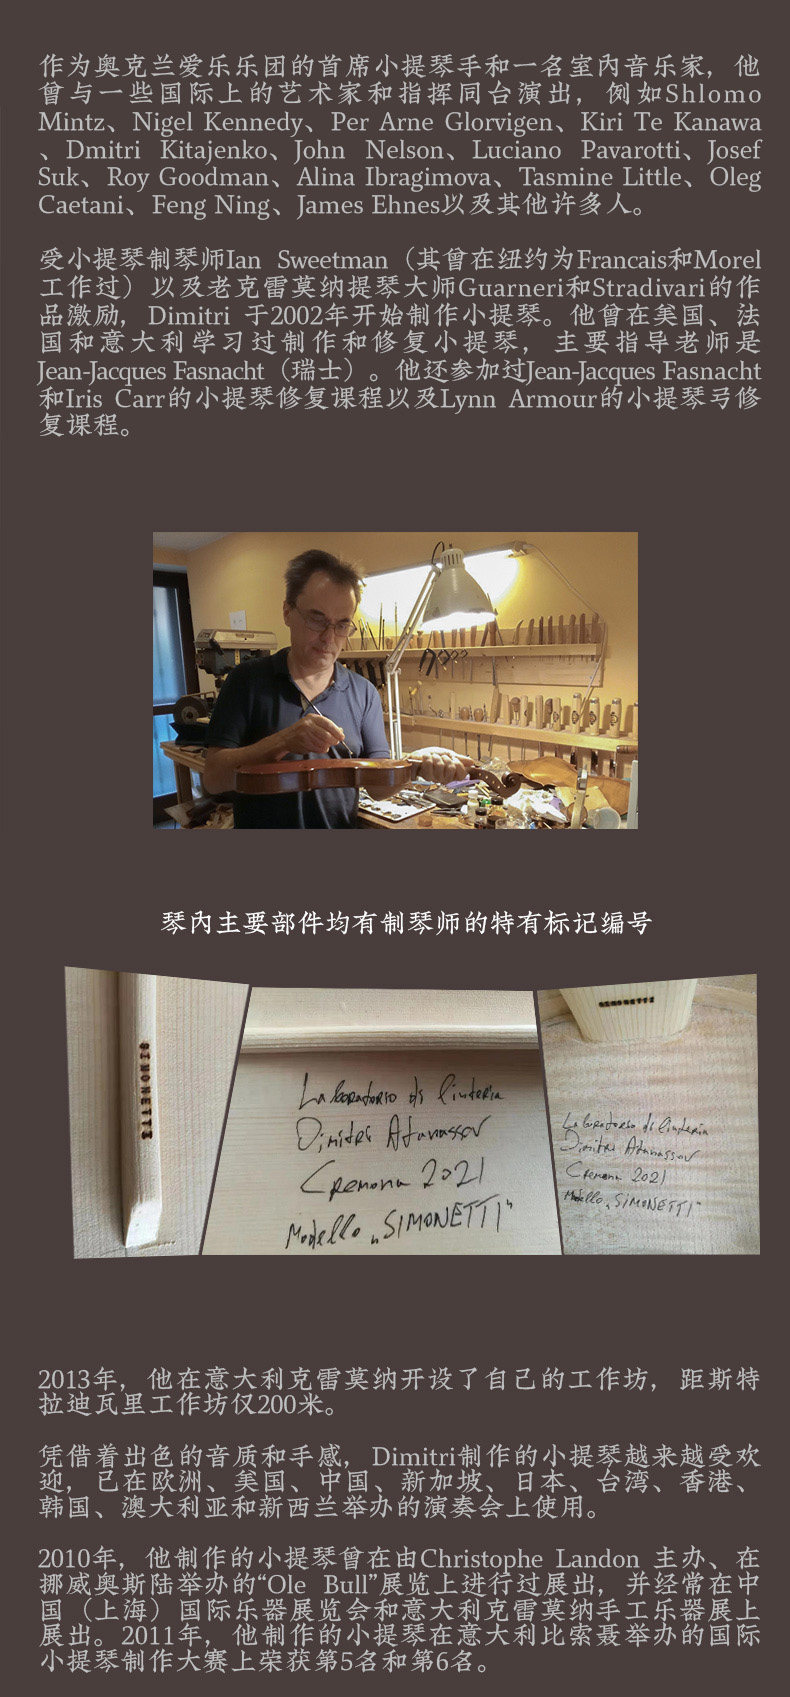 作为奥克兰爱乐乐团的首席小提琴手和一名室内音乐家，他
曾与一些国际上的艺术家和指挥同台演出，例如Shlomo
Mintz、Nigel Kennedy、Per Arne Glorvigen、Kiri Te Kanawa
、Dmitri Kitajenko、John Nelson、Luciano Pavarotti、Josef
Suk、Roy Goodman、Alina Ibragimova、Tasmine Little、Oleg
Caetani、Feng Ning、James Ehnes以及其他许多人。
受小提琴制琴师Ian Sweetman（其曾在纽约为Francais和Morel
工作过）以及老克雷莫纳提琴大师Guarneri和Stradivari的作
品激励，Dimitri 于2002年开始制作小提琴。他曾在美国、法
国和意大利学习过制作和修复小提琴，主要指导老师是
Jean-Jacques Fasnacht（瑞士）。他还参加过Jean-Jacques Fasnacht
和Iris Carr的小提琴修复课程以及Lynn Armour的小提琴弓修
复课程。
琴内主要部件均有制琴师的特有标记编号
SIMONETTI
Laboratorio di liuteria
Dimitri Atanassov
Cremona 2021
Modello „SIMONETTI"
SIMONETTI
Laboratorio di liuteria
Dimitri Atanassov
Cremona 2021
Modello „SIMONETTI"
2013年，他在意大利克雷莫纳开设了自己的工作坊，距斯特
拉迪瓦里工作坊仅200米。
凭借着出色的音质和手感，Dimitri制作的小提琴越来越受欢
迎，已在欧洲、美国、中国、新加坡、日本、台湾、香港、
韩国、澳大利亚和新西兰举办的演奏会上使用。
2010年，他制作的小提琴曾在由Christophe Landon 主办、在
挪威奥斯陆举办的“Ole Bull”展览上进行过展出，并经常在中
国（上海）国际乐器展览会和意大利克雷莫纳手工乐器展上
展出。2011年，他制作的小提琴在意大利比索聂举办的国际
小提琴制作大赛上荣获第5名和第6名。